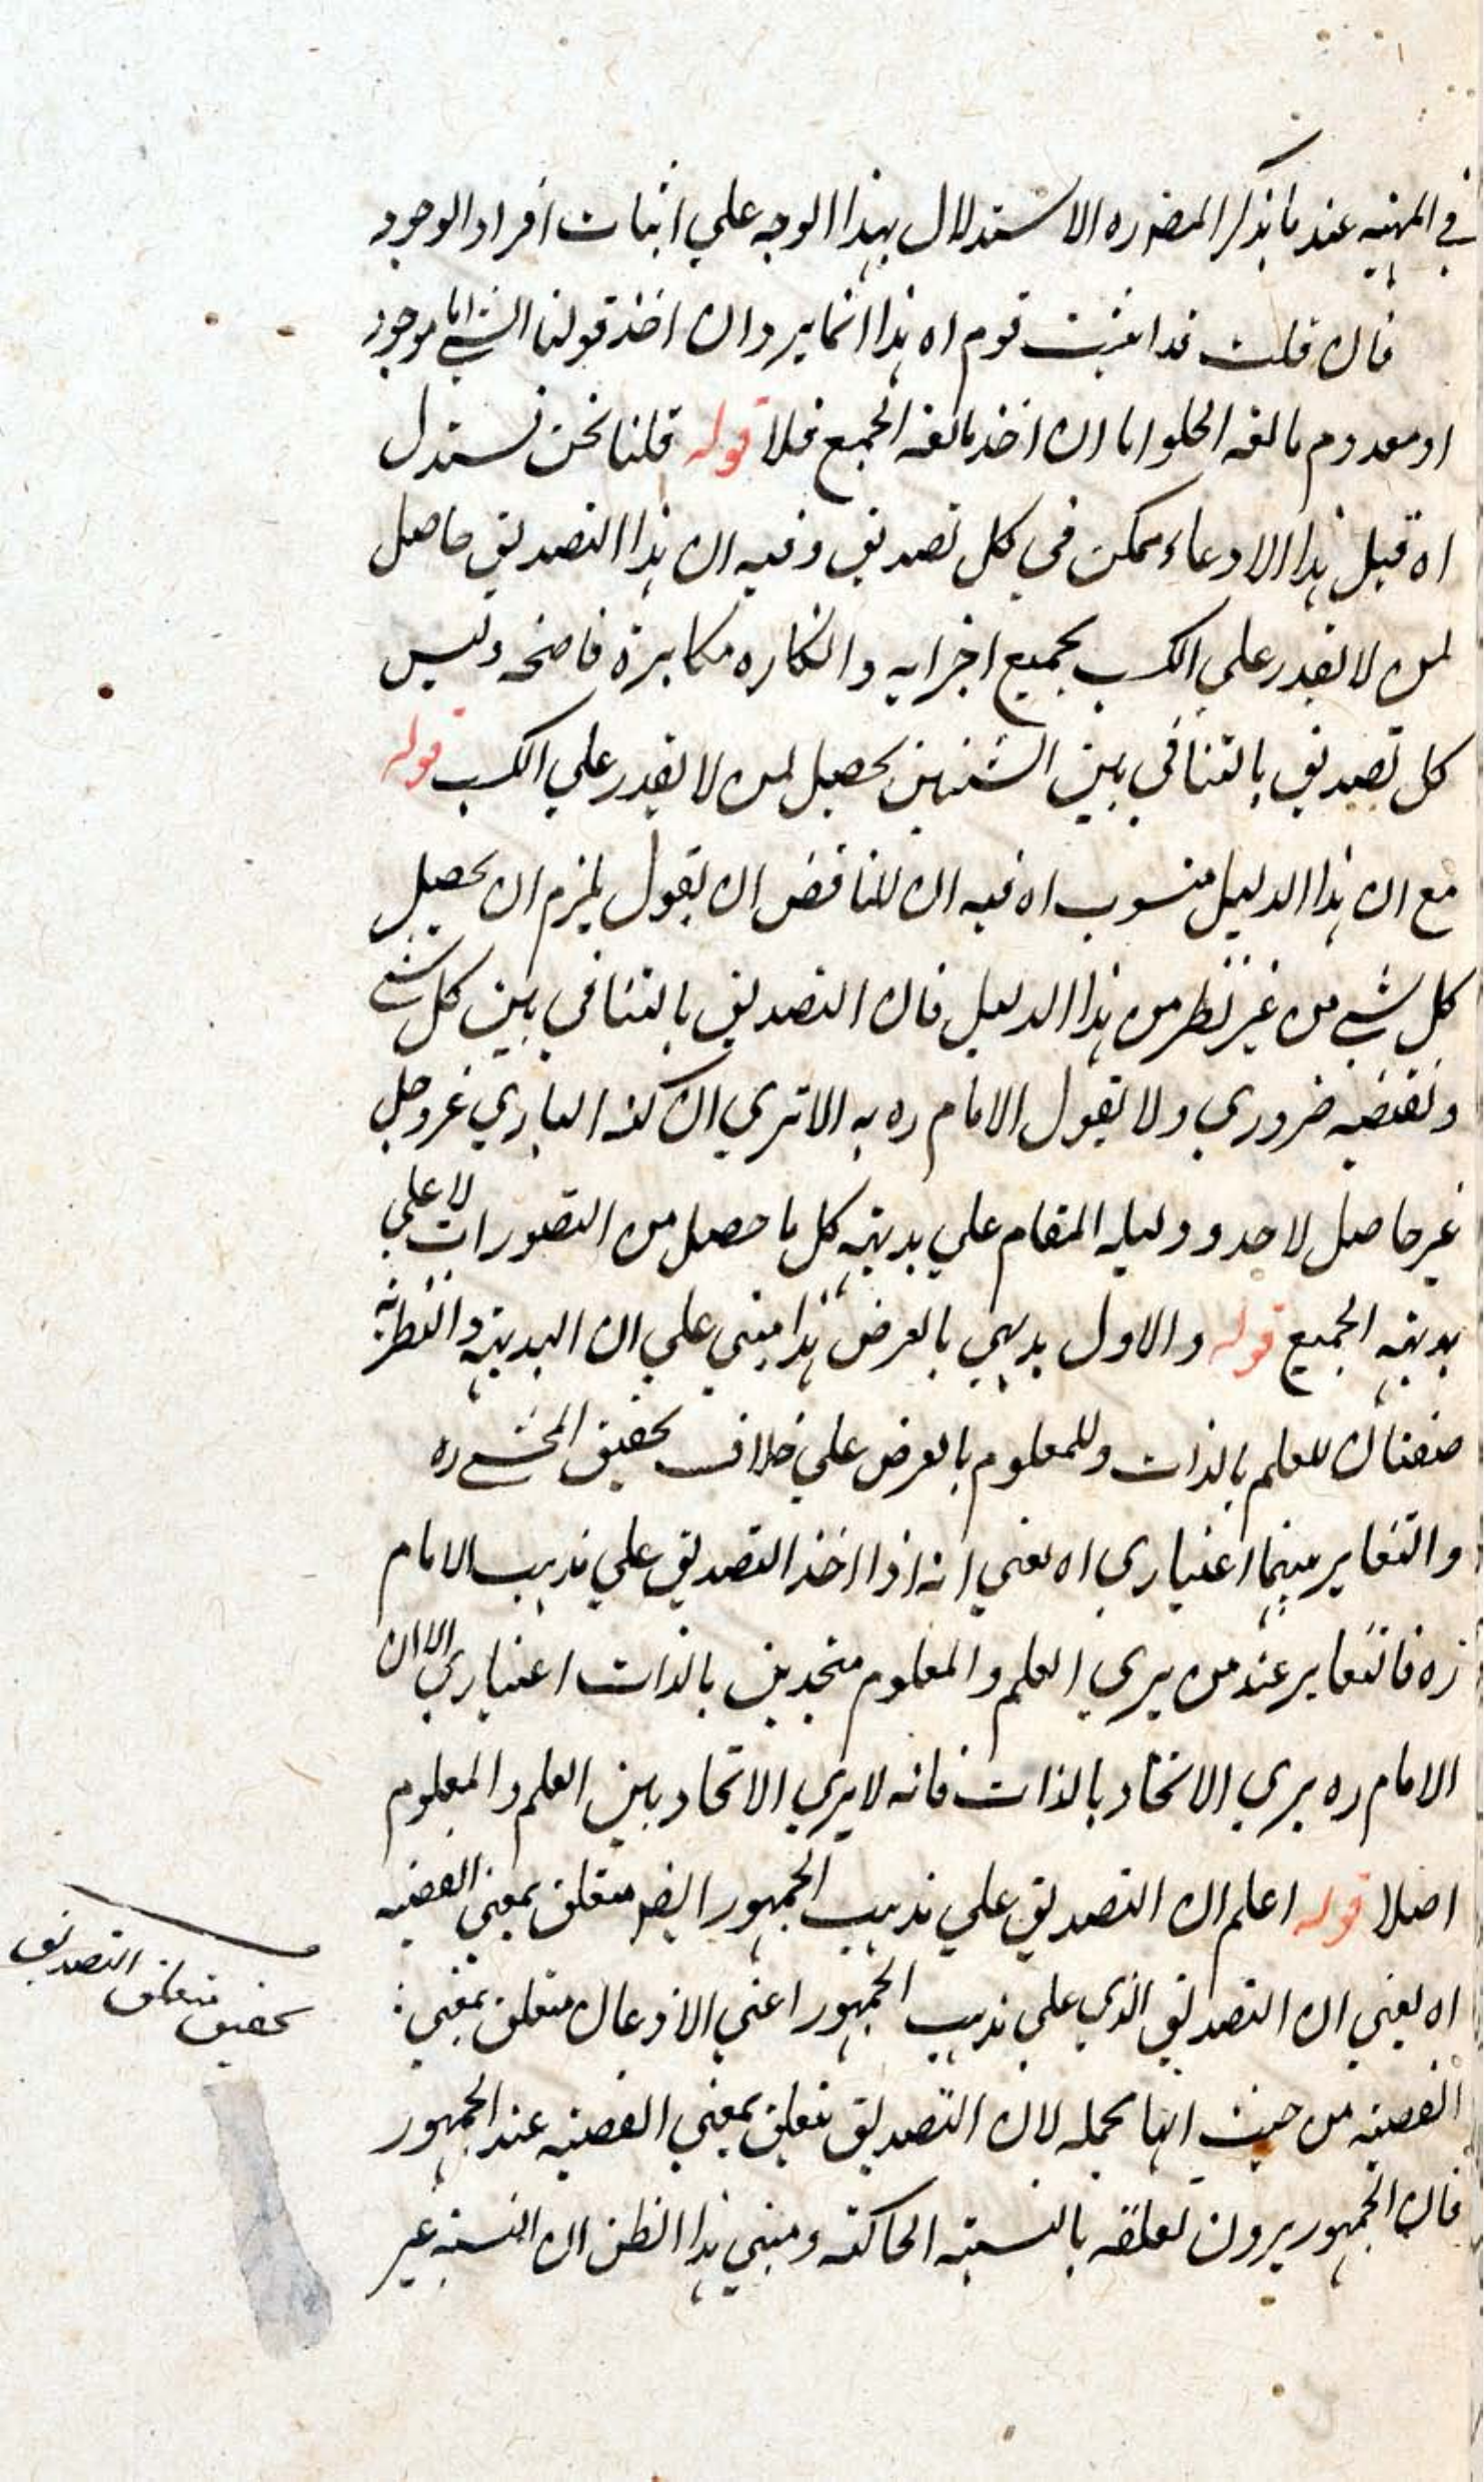 في المنهية عند ما يذكر المصره الاستدلال بهذا الوجه علي اثبات افراد الوجود
فان قلت قد اثبت قوم اه هذا انما يرد ان اخذ قولنا الشي اما موجود
او معدوم مانعة الخلو اما ان اخذ مانعة الجمع فلا قوله قلنا نحن نستدل
اه قيل هذا الادعاء ممكن في كل تصديق وفيه ان هذا التصديق حاصل
لمن لا يقدر علي الكسب بجميع اجزايه وانكاره مكابرة فاضحة وليس
كل تصديق بالتنافي بين الشيئين يحصل لمن لا يقدر علي الكسب قوله
مع ان هذا الدليل منسوب اه فيه ان للناقض ان يقول يلزم ان يحصل
كل شي من غير نظر من هذا الدليل فان التصديق بالتنافي بين كل شي
ونقيضه ضروري ولا يقول الامام ره به الا تري ان كنه الباري عز وجل
غير حاصل لاحد ودليله المقام علي بديهة كل ما حصل من التصورات لا علي
بديهة الجميع قوله والاول بديهي بالعرض هذا مبني علي ان البديهة والنظرية
صفتان للعلم بالذات وللمعلوم بالعرض علي خلاف تحقيق المحشي ره
والتغاير بينهما اعتباري اه يعني انه اذا اخذ التصديق علي مذهب الامام
ره فالتغاير عند من يري العلم والمعلوم متحدين بالذات اعتباري لا ان
الامام ره يري الاتحاد بالذات فانه لا يري الاتحاد بين العلم والمعلوم
اصلا قوله اعلم ان التصديق علي مذهب الجمهور ايضا متعلق بمعني القضية
اه يعني ان التصديق الذي علي مذهب الجمهور اعني الاذعان متعلق بمعني
القضية من حيث انها مجملة لان التصديق يتعلق بمعني القضية عند الجمهور
فان الجمهور يرون تعلقه بالنسبة الحاكية ومبني هذا الظن ان النسبة غير
تحقيق متعلق التصديق